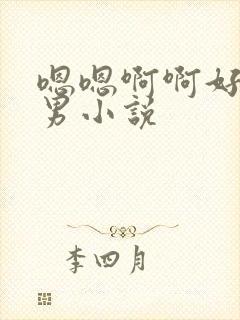 嗯嗯啊啊好
男小说
李四月